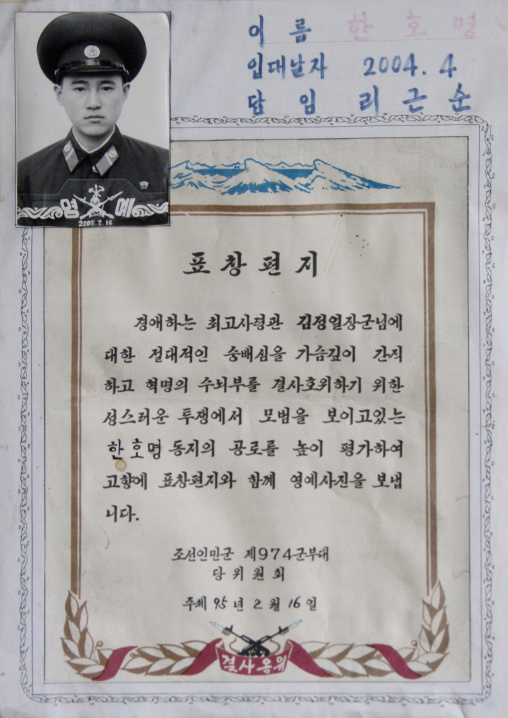 이 름 한 호 명
입대날자 2004. 4
담 임 리 근 순
영 예
2005. 2. 16
표 창 편 지
경애하는 최고사령관 김정일장군님에
대한 절대적인 숭배심을 가슴깊이 간직
하고 혁명의 수뇌부를 결사호위하기 위한
성스러운 투쟁에서 모범을 보이고있는
한호명 동지의 공로를 높이 평가하여
고향에 표창편지와 함께 영예사진을 보냅
니다.
조선인민군 제974군부대
당 위 원 회
주체 95 년 2 월 16 일
결사옹위